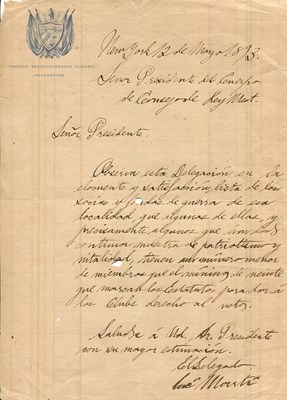 PARTIDO REVOLUCIONARIO CUBANO
DELEGACION
New York 12 de Mayo 1893.
Señor Presidente del Cuerpo
de Consejo de Key West.
Señor Presidente.
Observa esta Delegación en la
elemente y satisfacción, lista de los
socios y fondos de guerra de esa
localidad, que algunos de ellos, y
precisamente algunos que
continua muestra de patriotismo y
vitalidad, tienen un número menor
de miembros que el minimo de veinte
que marcan los Estatutos para dar á
los Clubs derecho al voto.
Saluda á Vd. Sr. Presidente
con su mayor estimación.
El Delegado
José Martí